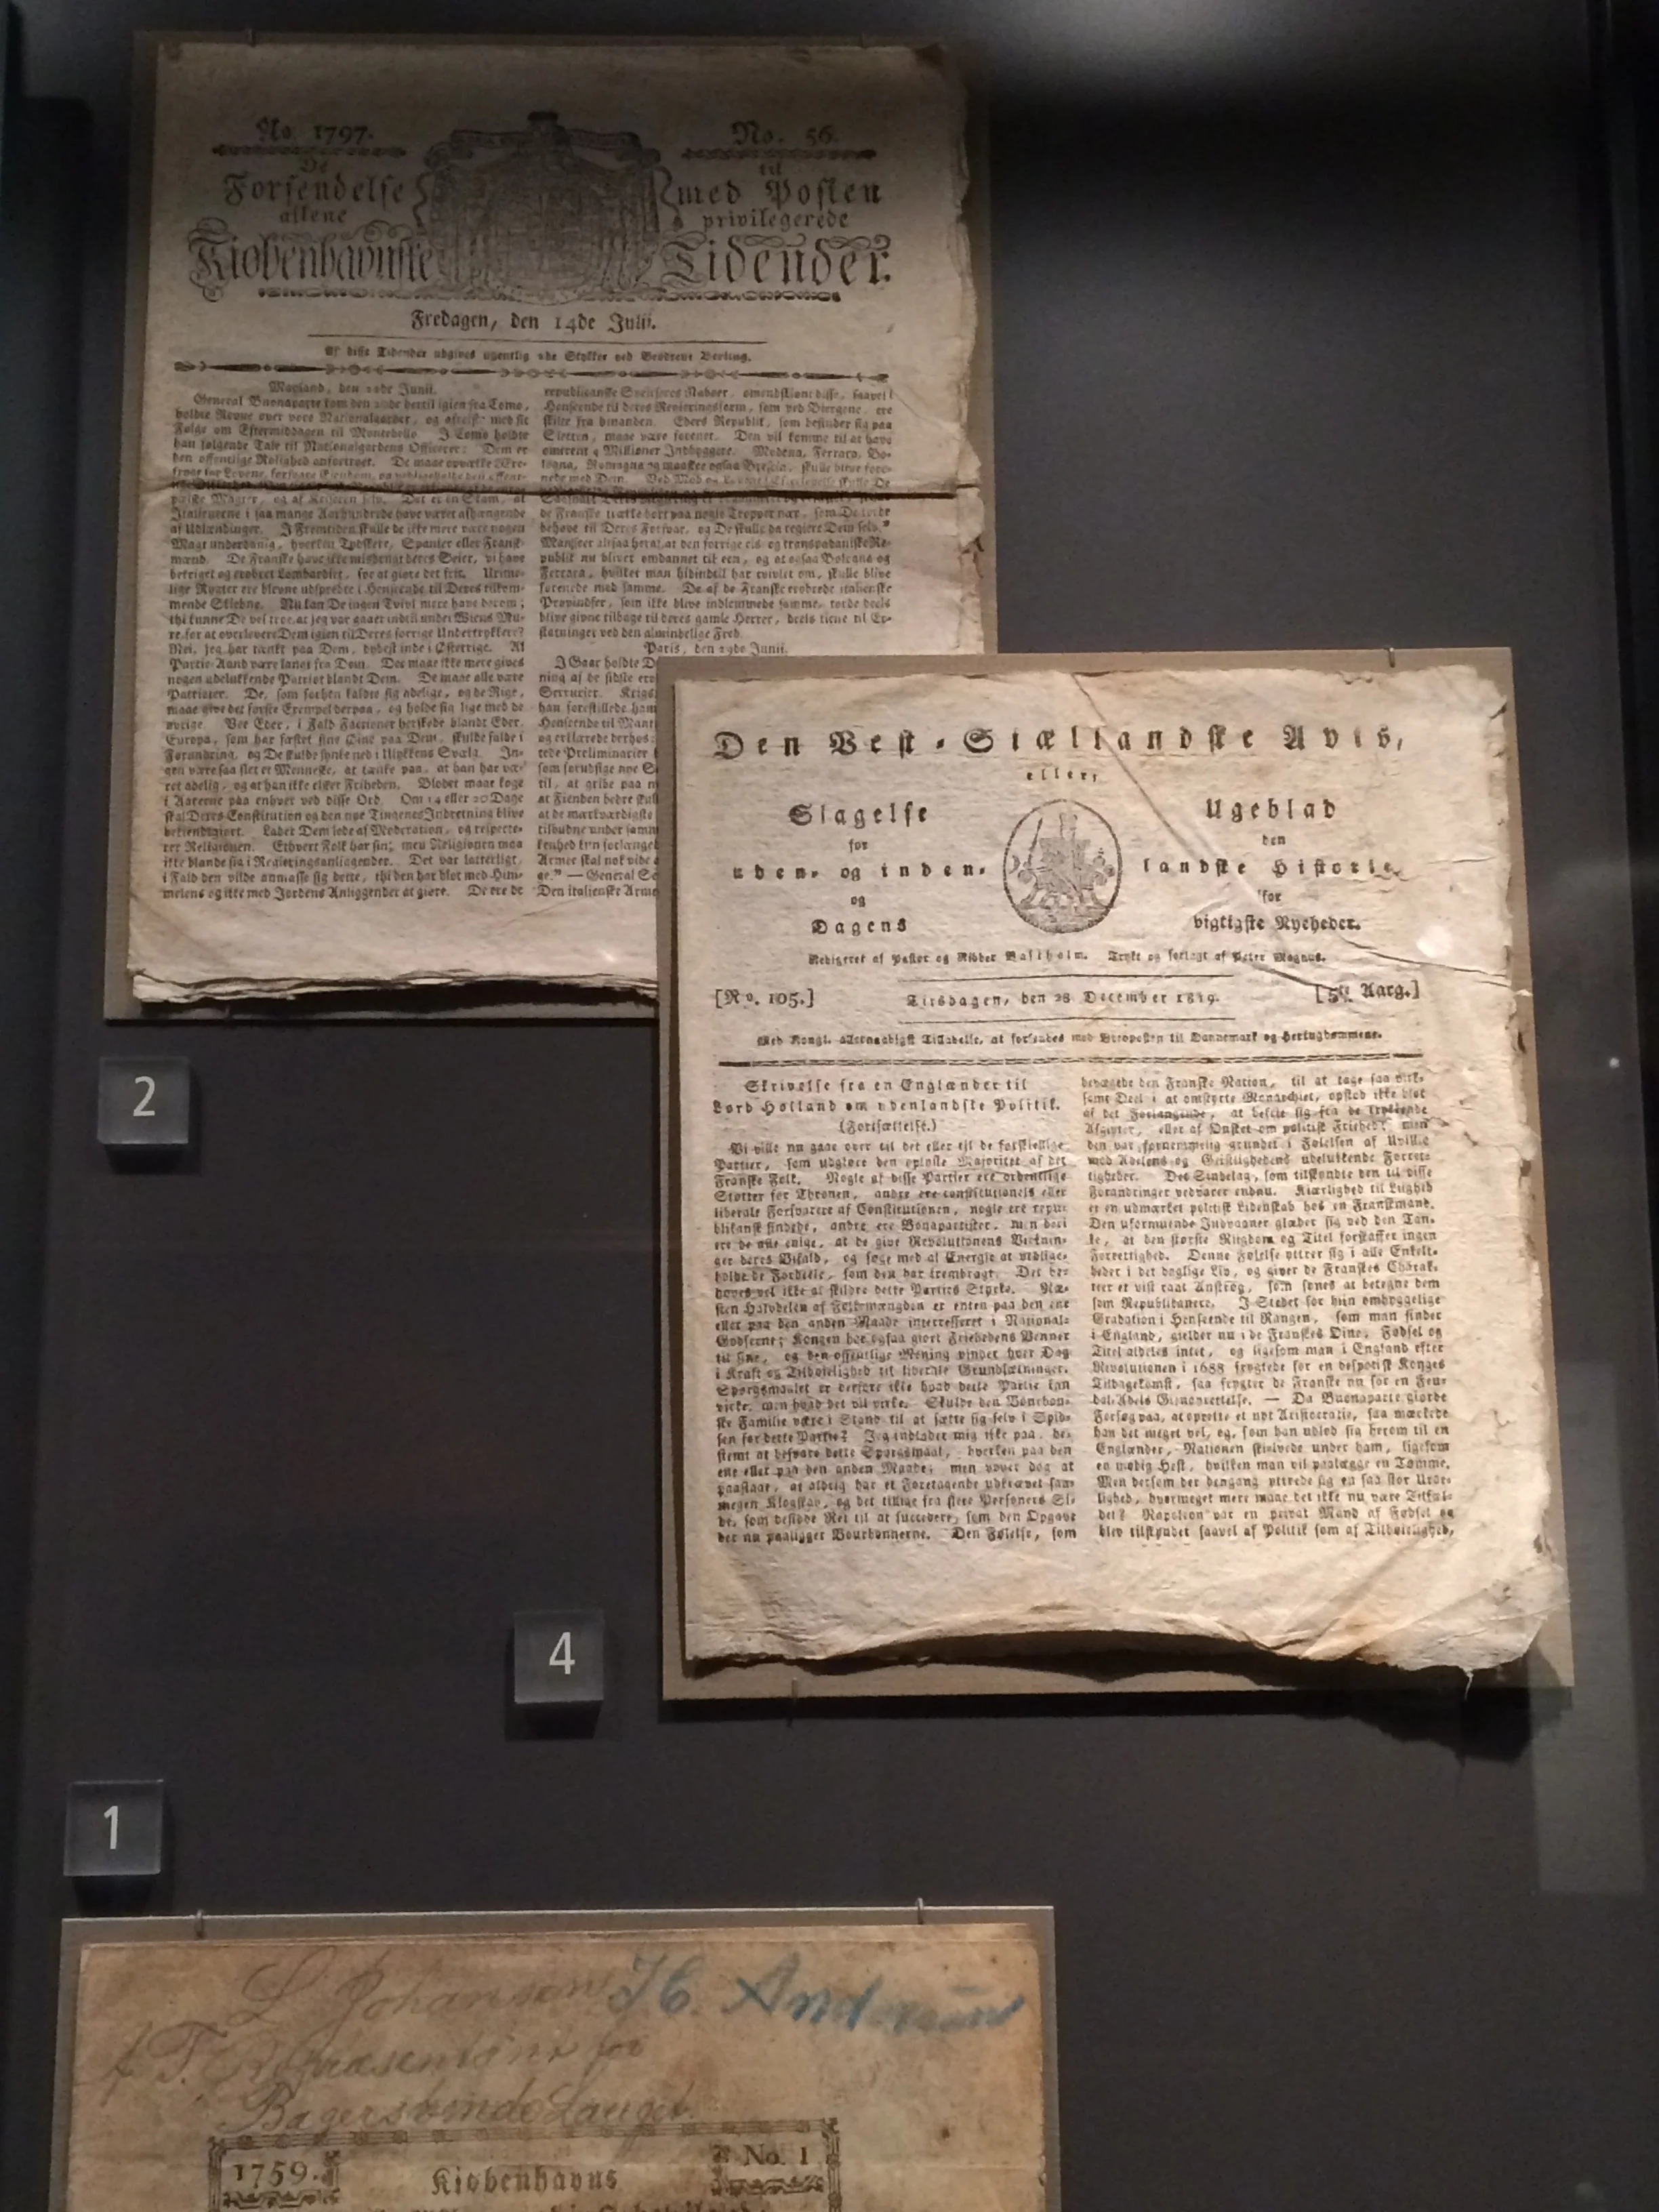 Ao. 1797.
No. 56.
De
til
Forsendelse
med Posten
allene
privilegerede
Kiøbenhavnske
Tidender.
Fredagen, den 14de Julii.
Af disse Tidender udgives ugentlig
Stykker ved Brødrene Berling.
Mayland, den
Junii.
General Buonaparte kom den
hertil igien fra Como,
holdte Revue over vore Nationalgarder, og afreiste med sit
Følge om Eftermiddagen til Montebello. I Como holdte
han følgende Tale til Nationalgardens Officerer: Dem er
den offentlige Rolighed anfortroet.
Italienerne i saa mange Aarhundrede have været afhængende
af Udlændinger. I Fremtiden skulle de ikke mere være nogen
Magt underdanig, hverken Tydskere, Spanier eller Fransk-
mænd. De Franske have ikke misbrugt deres Seier, vi have
bekriget og erobret Lombardiet, for at giøre det frit. Urime-
lige Rygter ere blevne udspredte i Henseende til Deres tilkom-
mende Skiebne. Nu kan De ingen Tvivl mere have derom;
thi kunne De vel troe, at jeg var gaaet indtil under Wiens Mu-
re, for at overlevere Dem igien til Deres forrige Undertrykkere?
Nei, jeg har tænkt paa Dem, dybest inde i Østerrige. Al
Partie-Aand være langt fra Dem. Der maae ikke mere gives
nogen udelukkende Patriot blandt Dem. De maae alle være
Patrioter. De, som forhen kaldte sig adelige, og de Rige,
maae give det første Exempel derpaa, og holde sig lige med de
øvrige. Vee Eder, i Fald Factioner herskede blandt Eder.
Europa, som har fæstet sine Øine paa Dem, skulde falde i
Forundring, og De skulde synke ned i Ulykkens Svælg. In-
gen være saa slet et Menneske, at tænke paa, at han har væ-
ret adelig, og at han ikke elsker Friheden. Blodet maae koge
i Aarerne paa enhver ved disse Ord. Om 14 eller 20 Dage
skal Deres Constitution og den nye Tingenes Indretning blive
bekiendtgiort. Lader Dem lede af Moderation, og respecte-
rer Religionen. Ethvert Folk har sin; men Religionen maa
ikke blande sig i Regieringsanliggender. Det var latterligt,
i Fald den vilde anmasse sig dette, thi den har blot med Him-
melens og ikke med Jordens Anliggender at giøre. De ere de
republicanske Sveitseres Naboer, omendskiønt disse, saavel i
Henseende til deres Regieringsform, som ved Biergene, ere
skilte fra hinanden. Eders Republik, som befinder sig paa
Sletten, maae være forenet. Den vil komme til at have
omtrent 4 Millioner Indbyggere. Modena, Ferrara, Bo-
logna, Romagna og maaskee ogsaa Brescia, skulle blive fore-
nede med Dem.
de Franske trække bort paa nogle Tropper nær, som De
behøve til Deres Forsvar, og De skulle da regiere Dem selv."
Mærker altsaa heraf, at den forrige cis- og transpadaniske Re-
publik nu bliver omdannet til een, og at ogsaa Bologna og
Ferrara, hvilket man hidindtil har tvivlet om, skulle blive
forenede med samme. De af de Franske erobrede italienske
Provindser, som ikke blive indlemmede samme, torde deels
blive givne tilbage til deres gamle Herrer, deels tiene til Er-
statninger ved den almindelige Fred.
Paris, den 29de Junii.
I Gaar holdte D
ning af de sidste ero
Serrurier. Krigs
han forestillede ham
Henseende til Mant
og erklærede derhos:
tede Preliminarier
som forudsige nye S
til, at gribe paa n
at Fienden bedre skul
at de mærkværdigste
tilbudne under samm
kenhed kun forlænged
Armee skal nok vide
ge." — General Se
Den italienske Arme
2
Den Vest-Siællandske Avis,
eller,
Slagelse
Ugeblad
for
den
uden- og inden-
landske Historie
og
for
Dagens
vigtigste Nyeheder.
Redigeret af Pastor og Ridder Bastholm. Trykt og forlagt af Peter Magnus.
[No. 105.]
Tirsdagen, den 28 December 1819.
[5te Aarg.]
Med Kongl. allernaadigst Tilladelse, at forsendes med Brevposten til Dannemark og Hertugdømmene.
Skrivelse fra en Englænder til
Lord Holland om udenlandske Politik.
(Fortsættelse.)
Vi ville nu gaae over til det eller til de forskiellige
Partier, som udgiøre den oplyste Majoritet af det
Franske Folk. Nogle af disse Partier ere ordentlige
Støtter for Thronen, andre ere constitutionels eller
liberale Forsvarere af Constitutionen, nogle ere repu-
blikansk sindede, andre ere Bonapartister, men deri
ere de alle enige, at de give Revolutionens Virknin-
ger deres Bifald, og søge med al Energie at vedlige-
holde de Fordele, som den har frembragt. Det be-
høves vel ikke at skildre dette Parties Styrke. Næ-
sten Halvdelen af Folkemængden er enten paa den ene
eller paa den anden Maade interesseret i National-
Godserne; Kongen har ogsaa giort Friehedens Venner
til sine, og den offentlige Mening vinder hver Dag
i Kraft og Tilbøielighed til liberale Grundsætninger.
Spørgsmaalet er derfore ikke hvad dette Partie kan
virke, men hvad det vil virke. Skulde den Bourbon-
ske Familie være i Stand til at sætte sig selv i Spid-
sen for dette Partie? Jeg indlader mig ikke paa, be-
stemt at besvare dette Spørgsmaal, hverken paa den
ene eller paa den anden Maade; men vover dog at
paastaae, at aldrig har et Foretagende udkrævet saa-
megen Klogskab, og det tillige fra flere Personers Si-
de, som besidde Ret til at succedere, som den Opgave
der nu paaligger Bourbonnerne. Den Følelse, som
bevægede den Franske Nation, til at tage saa virk-
somt Deel i at omstyrte Monarchiet, opstod ikke blot
af det Forlangende, at befrie sig fra de trykkende
Afgivter, eller af Ønsket om politisk Friehed; men
den var fornemmelig grundet i Følelsen af Uvillie
mod Adelens og Geistlighedens udelukkende Forret-
tigheder. Det Sindelag, som tilskyndte den til disse
Forandringer vedvarer endnu. Kiærlighed til Liighed
er en udmærket politisk Lidenskab hos en Franskmand.
Den uformuende Indvaaner glæder sig ved den Tan-
ke, at den største Rigdom og Titel forskaffer ingen
Forrettighed. Denne Følelse yttrer sig i alle Enkelt-
heder i det daglige Liv, og giver de Franskes Charak-
teer et vist raat Anstrøg, som synes at betegne dem
som Republikanere. I Stedet for hiin omhyggelige
Gradation i Henseende til Rangen, som man finder
i England, gielder nu i de Franskes Øine, Fødsel og
Titel aldeles intet, og ligesom man i England efter
Revolutionen i 1688 frygtede for en despotisk Konges
Tilbagekomst, saa frygter de Franske nu for en Feu-
dal-Adels Gienoprettelse. — Da Buonaparte giorde
Forsøg paa, at oprette et nyt Aristocratie, saa mærkede
han det meget vel, og, som han udlod sig herom til en
Englænder, Nationen skielvede under ham, ligesom
en modig Hest, hvilken man vil paalægge en Tømme.
Men dersom der dengang yttrede sig en saa stor Uroe-
lighed, hvormeget mere maae det ikke nu være Tilfæl-
det? Napoleon var en privat Mand af Fødsel og
blev tilskyndet saavel af Politik som af Tilbøielighed,
4
1
L Johansen J E. Andersen
f. T. Repræsentant for
Bagersvende Lauget.
1759.
No. 1
Kiøbenhavns